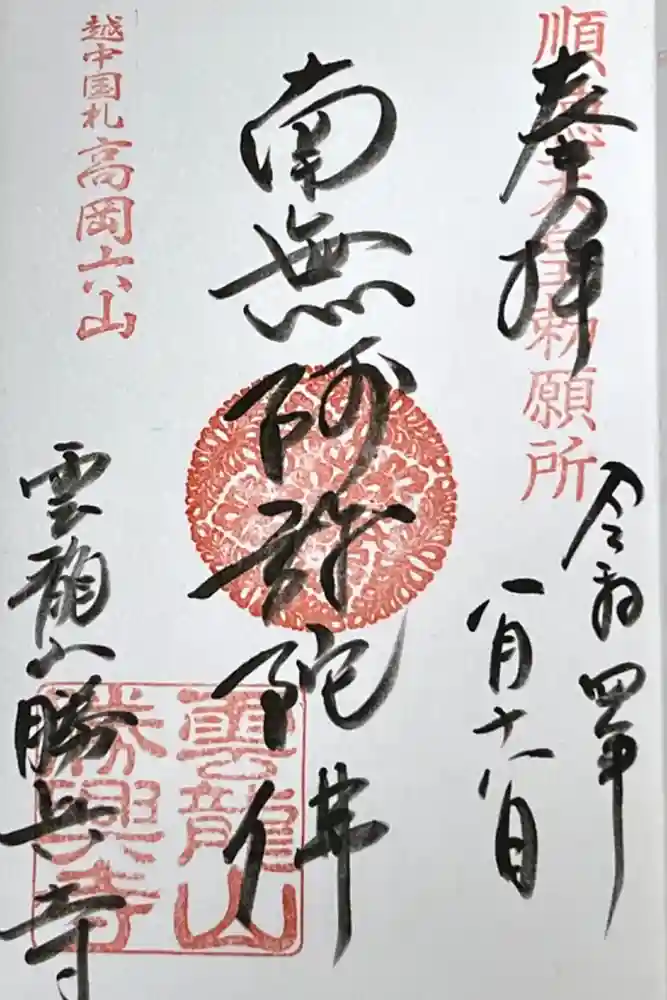 順徳天皇勅願所
奉拝
令和四年
一月十八日
南無阿弥陀佛
越中国札高岡六山
雲龍山勝興寺
雲龍山
勝興寺